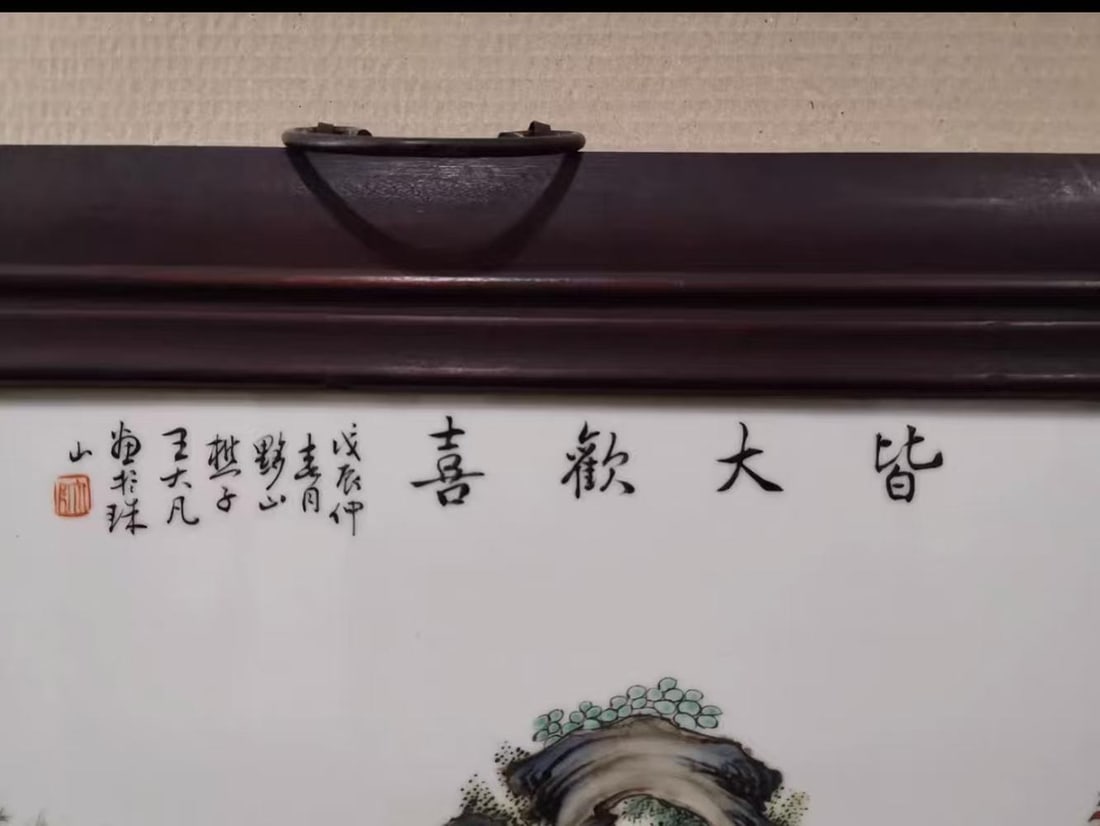 皆大歡喜
戊辰仲
春月
黟山
樵子
王大凡
畫於珠
山